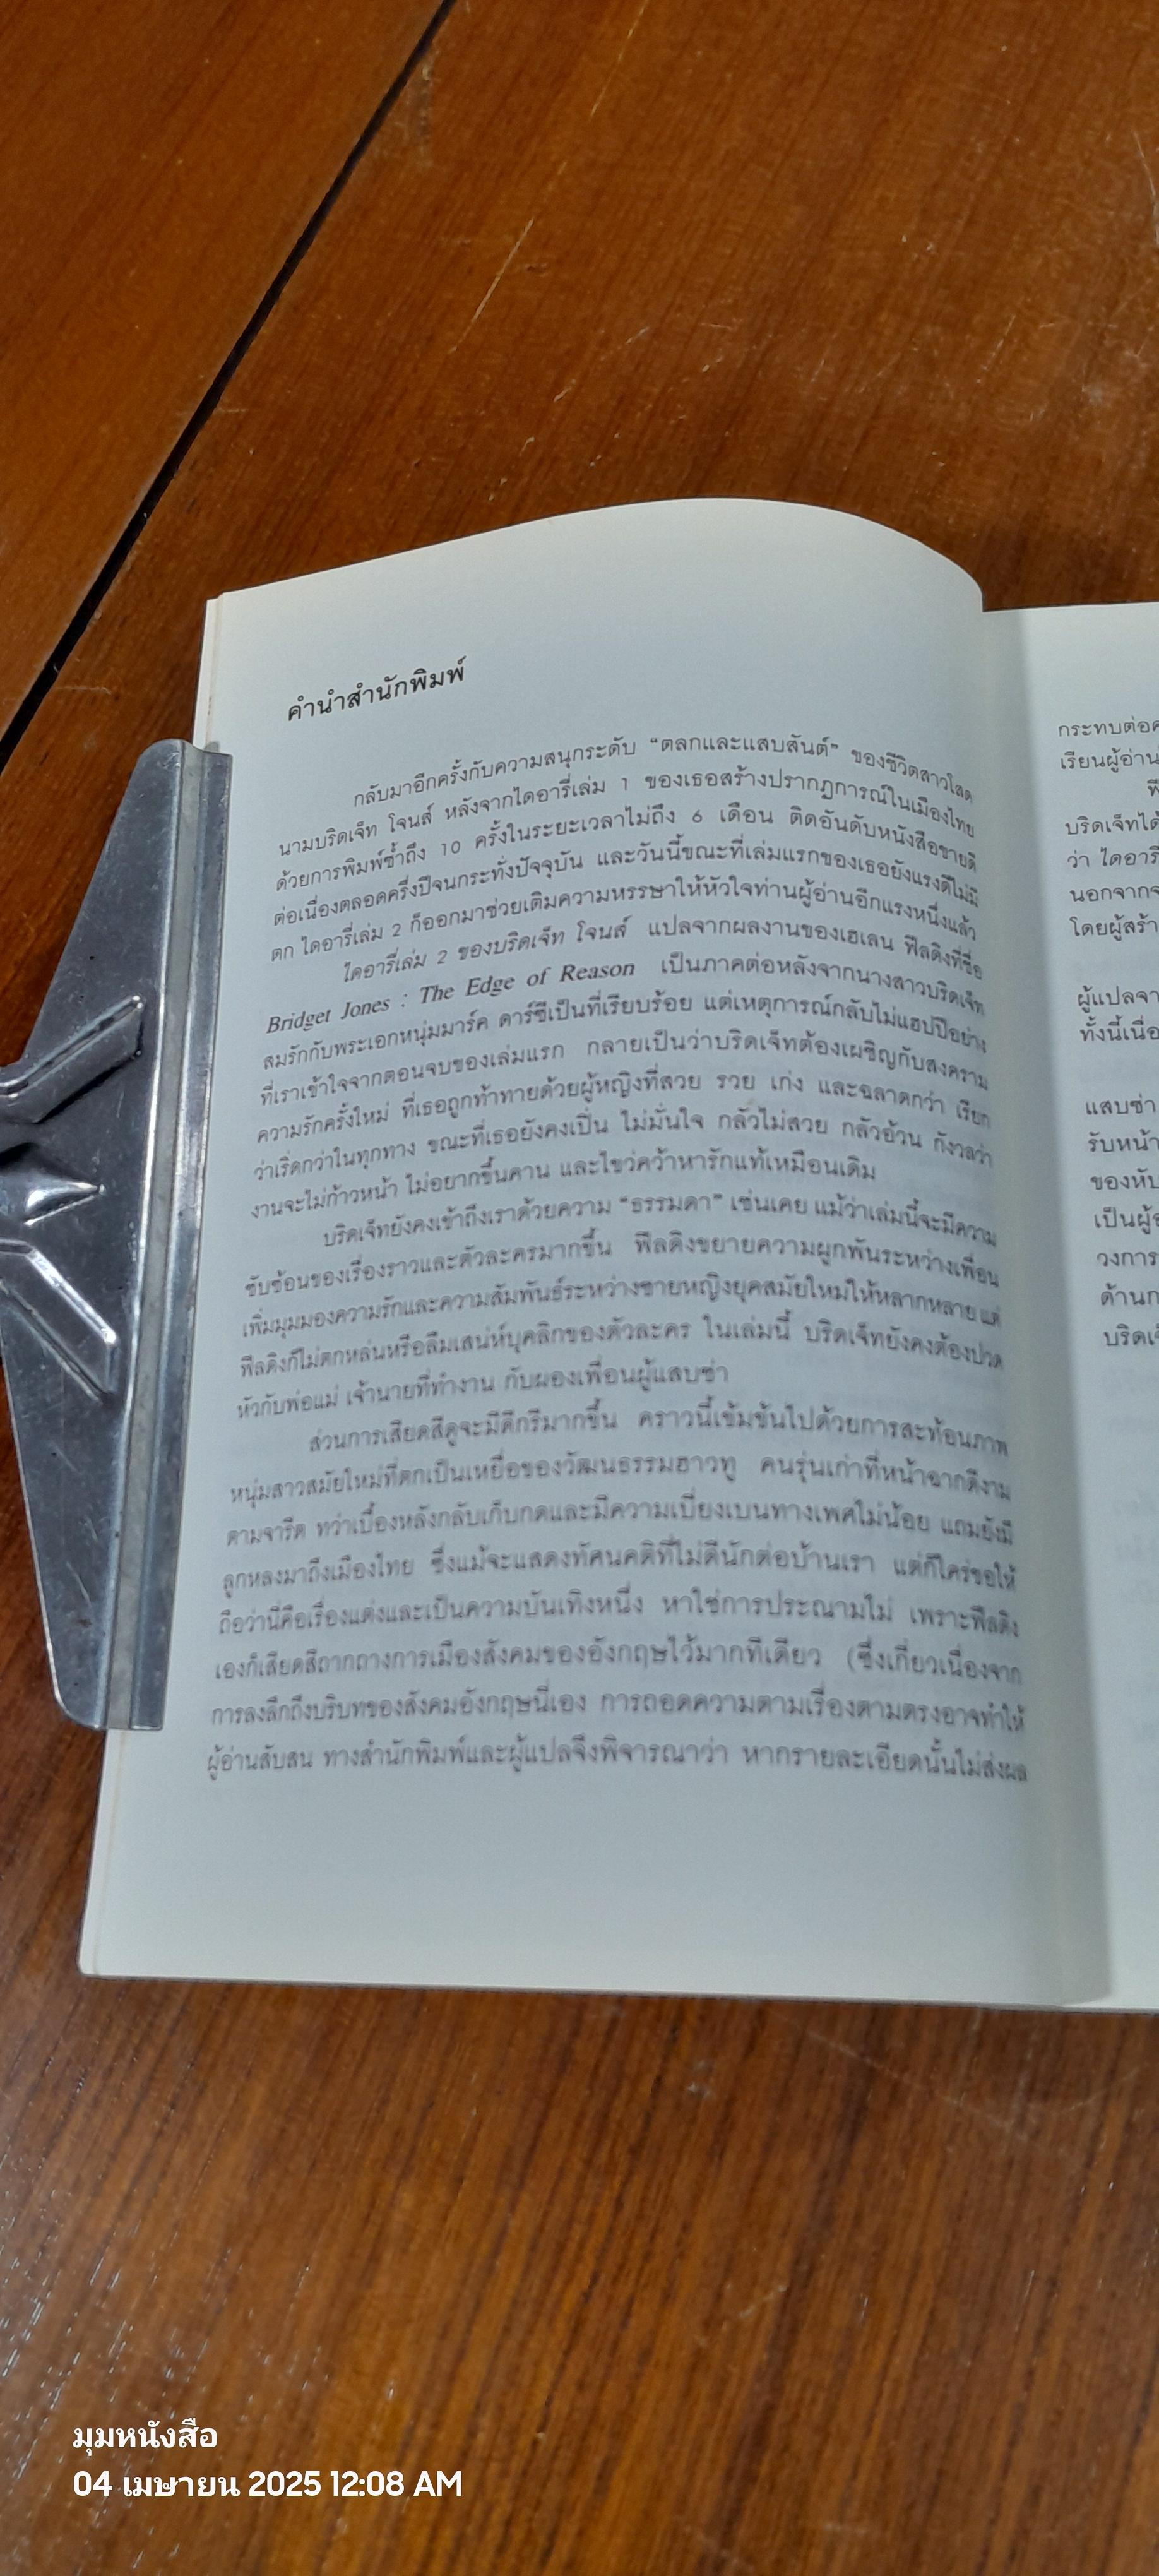 คำนำสำนักพิมพ์
กลับมาอีกครั้งกับความสนุกระดับ “ตลกและแสบสันต์” ของชีวิตสาวโสด
นามบริดเจ็ท โจนส์ หลังจากไดอารี่เล่ม 1 ของเธอสร้างปรากฏการณ์ในเมืองไทย
ด้วยการพิมพ์ซ้ำถึง 10 ครั้งในระยะเวลาไม่ถึง 6 เดือน ติดอันดับหนังสือขายดี
ต่อเนื่องตลอดครึ่งปีจนกระทั่งปัจจุบัน และวันนี้ขณะที่เล่มแรกของเธอยังแรงดีไม่มี
ตก ไดอารี่เล่ม 2 ก็ออกมาช่วยเติมความหรรษาให้หัวใจท่านผู้อ่านอีกแรงหนึ่งแล้ว
ไดอารี่เล่ม 2 ของบริดเจ็ท โจนส์ แปลจากผลงานของเฮเลน ฟีลดิงที่ชื่อ
Bridget Jones : The Edge of Reason เป็นภาคต่อหลังจากนางสาวบริดเจ็ท
สมรักกับพระเอกหนุ่มมาร์ค ดาร์ซีเป็นที่เรียบร้อย แต่เหตุการณ์กลับไม่แฮปปี้อย่าง
ที่เราเข้าใจจากตอนจบของเล่มแรก กลายเป็นว่าบริดเจ็ทต้องเผชิญกับสงคราม
ความรักครั้งใหม่ ที่เธอถูกท้าทายด้วยผู้หญิงที่สวย รวย เก่ง และฉลาดกว่า เรียก
ว่าเริ่ดกว่าในทุกทาง ขณะที่เธอยังคงเปิ่น ไม่มั่นใจ กลัวไม่สวย กลัวอ้วน กังวลว่า
งานจะไม่ก้าวหน้า ไม่อยากขึ้นคาน และไขว่คว้าหารักแท้เหมือนเดิม
บริดเจ็ทยังคงเข้าถึงเราด้วยความ “ธรรมดา” เช่นเคย แม้ว่าเล่มนี้จะมีความ
ซับซ้อนของเรื่องราวและตัวละครมากขึ้น ฟีลดิงขยายความผูกพันระหว่างเพื่อน
เพิ่มมุมมองความรักและความสัมพันธ์ระหว่างชายหญิงยุคสมัยใหม่ให้หลากหลาย แต่
ฟีลดิงก็ไม่ตกหล่นหรือลืมเสน่ห์บุคลิกของตัวละคร ในเล่มนี้ บริดเจ็ทยังคงต้องปวด
หัวกับพ่อแม่ เจ้านายที่ทำงาน กับผองเพื่อนผู้แสบซ่า
ส่วนการเสียดสีดูจะมีดีกรีมากขึ้น คราวนี้เข้มข้นไปด้วยการสะท้อนภาพ
หนุ่มสาวสมัยใหม่ที่ตกเป็นเหยื่อของวัฒนธรรมฮาวทู คนรุ่นเก่าที่หน้าฉากดีงาม
ตามจารีต ทว่าเบื้องหลังกลับเก็บกดและมีความเบี่ยงเบนทางเพศไม่น้อย แถมยังมี
ลูกหลงมาถึงเมืองไทย ซึ่งแม้จะแสดงทัศนคติที่ไม่ดีนักต่อบ้านเรา แต่ก็ใคร่ขอให้
ถือว่านี่คือเรื่องแต่งและเป็นความบันเทิงหนึ่ง หาใช่การประณามไม่ เพราะฟีลดิง
เองก็เสียดสีถากถางการเมืองสังคมของอังกฤษไว้มากทีเดียว (ซึ่งเกี่ยวเนื่องจาก
การลงลึกถึงบริบทของสังคมอังกฤษนี่เอง การถอดความตามเรื่องตามตรงอาจทำให้
ผู้อ่านสับสน ทางสำนักพิมพ์และผู้แปลจึงพิจารณาว่า หากรายละเอียดนั้นไม่ส่งผล
กระทบต่อ
เรียนผู้อ่าน
บริดเจ็ทได้
ว่า ไดอารี่
นอกจาก
โดยผู้สร้า
ผู้แปลจา
ทั้งนี้เนื่อ
แสบซ่า
รับหน้า
ของหับ
เป็นผู้
วงการ
ด้าน
บริดเจ็
มุมหนังสือ
04 เมษายน 2025 12:08 AM